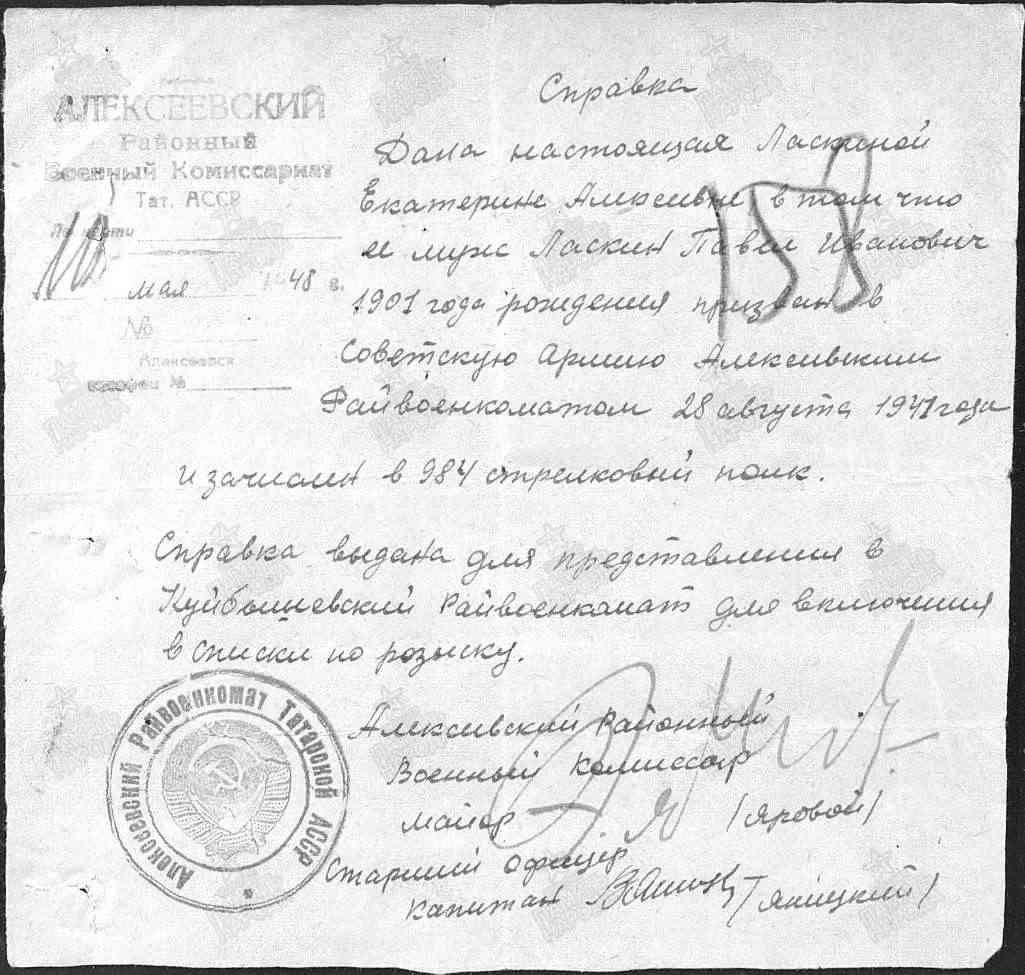 АЛЕКСЕЕВСКИЙ
Районный
Военный Комиссариат
Тат. АССР
По части
мая 1948 г.
№
Алексеевск
Справка
Дана настоящая Ласкиной
Екатерине Алексевне в том что
ее муж Ласкин Павел Иванович
1901 года рождения призван в
Советскую Армию Алексевским
Райвоенкоматом 28 августа 1941 года
и зачислен в 984 стрелковый полк.
158
Справка выдана для представления в
Куйбышевский Райвоенкомат для включения
в списки по розыску.
Алексевский Районный
Военный Комиссар
майор (Яровой)
Старший офицер
капитан (Яницкий)
Алексеевский Райвоенкомат Татарской АССР